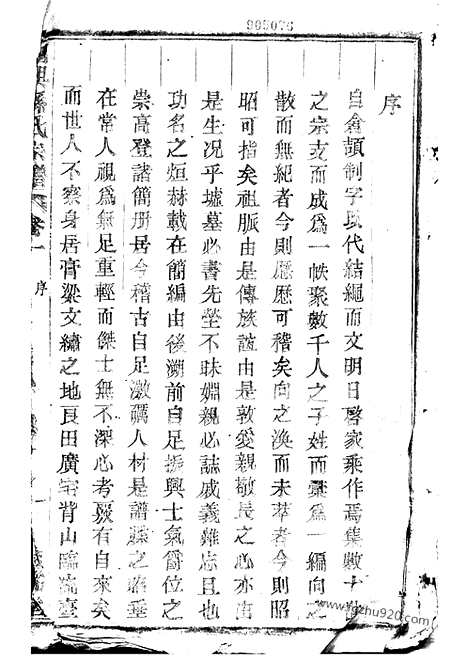 993076
序
自倉頡制字以代結繩而文明日啓家乘作焉集數十
之宗支而成爲一帙聚數千人之子姓而彙爲一編向之
散而無紀者今則歷歷可稽矣向之渙而未萃者今則昭
昭可指矣祖脈由是傳族誼由是敦愛親敬長之心亦由
是生况乎墳墓必書先塋不昧婣親必誌戚義難忘且也
功名之烜赫載在簡編由後溯前自足振興士氣爵位之
崇高登諸簡册居今稽古自足激礪人材是譜牒之垂
在常人視爲無足重輕而傑士無不深必考厥有自來矣
而世人不察身居膏粱文繡之地良田廣宅背山臨流臺
孫氏宗譜 序